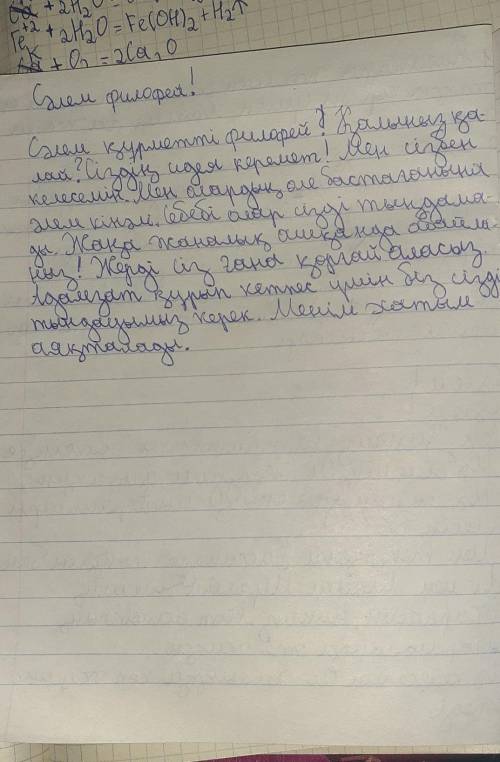 + 2H₂O =
Fe⁺² + 2H₂O = Fe(OH)₂ + H₂↑
+ O₂ = 2Ca₂O
Сәлем филофей!
Сәлем құрметті филофей! Қалыныз қа-
лай? Сіздің идея керемет! Мен сізбен
келесемін. Мен олардың өле бастағанына
әлем кінәлі. Себебі олар сізді тындама-
ды. Жаңа жаналық ашқанда абайла-
ныз! Жерді сіз ғана қорғай аласыз.
Адамзат құрып кетпес үшін біз сізді
тындауымыз керек. Менім хатым
аяқталады.